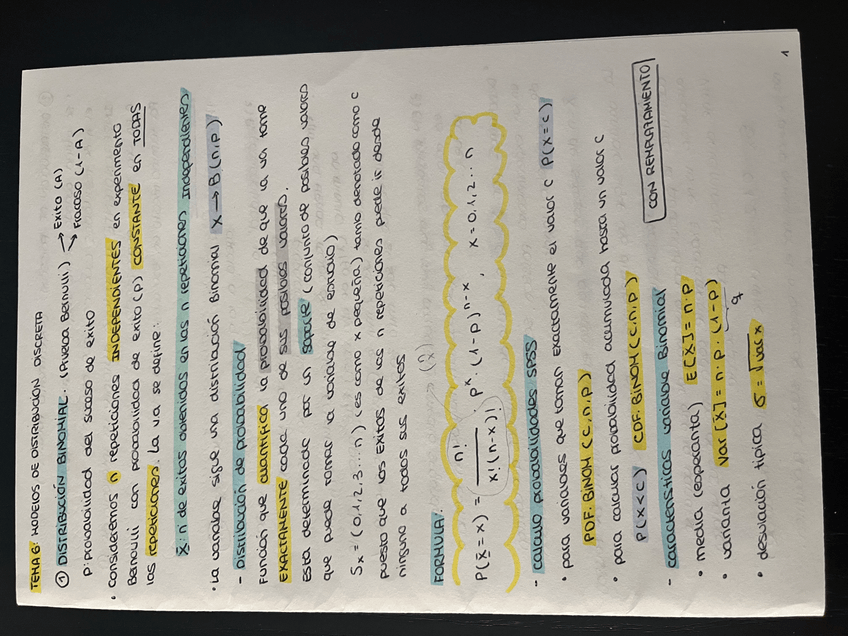 TEMA 6: MODELOS DE DISTRIBUCIÓN DISCRETA
① DISTRIBUCIÓN BINOMIAL. (Prueba Bernulli) → Éxito (A)
→ Fracaso (1-A)
p: probabilidad del suceso de éxito
• consideremos n repeticiones INDEPENDIENTES en experimento
Bernulli con probabilidad de éxito (p) CONSTANTE en TODAS
las repeticiones. La va se define:
X: n de exitos obtenidos en las n repeticiones independientes
• La variable sigue una distribución Binomial X → B(n,p)
- Distribución de probabilidad
Función que cuantifica la probabilidad de que la va tome
EXACTAMENTE cada uno de sus posibles valores.
Está determinado por un soporte (conjunto de posibles valores
que puede tomar la variable de estudio)
Sx = (0,1,2,3...n) (es como x pequeña) tamb denotado como c
puesto que los éxitos de las n repeticiones puede ir desde
ninguno a todos sus éxitos
FORMULA:
P(X=x) = n! / x!(n-x)! p^x · (1-p)^n-x , x = 0,1,2...n
- calculo probabilidades SPSS
• para variables que toman exactamente el valor c P(X=c)
PDF.BINOM (c,n,p)
• para calcular probabilidad acumulada hasta un valor c
P(X<c) CDF.BINOM (c,n,p)
- características variable Binomial CON REMPLAZAMIENTO
• media (esperanza) E[X] = n·p
• varianza Var[X] = n·p·(1-p)
q
• desviación típica σ = √var x
1